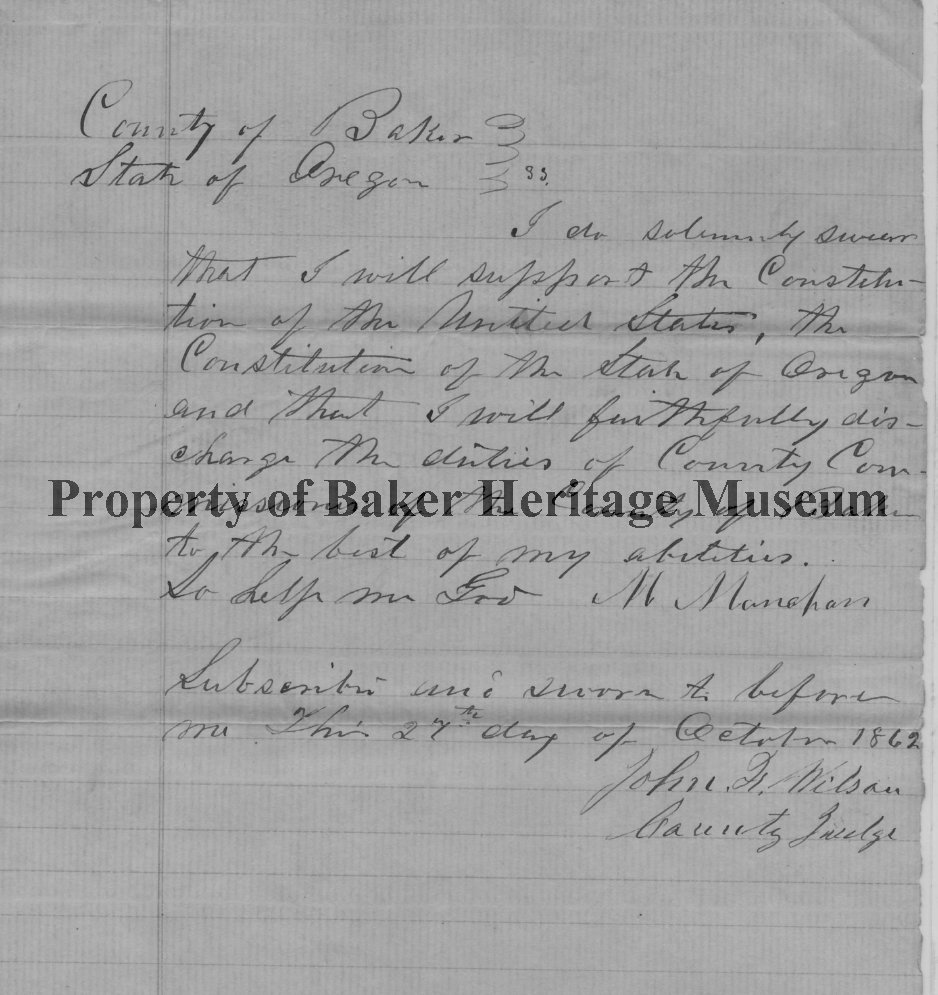 County of Baker
State of Oregon } ss.
I do solemnly swear
that I will support the Constitu-
tion of the United States, the
Constitution of the State of Oregon
and that I will faithfully dis-
charge the duties of County Com-
missioner of the County of Baker
Property of Baker Heritage Museum
to the best of my abilities.
So help me God M Manahan
Subscribed and sworn to before
me This 27th day of October 1862
John Q. Wilson
County Judge